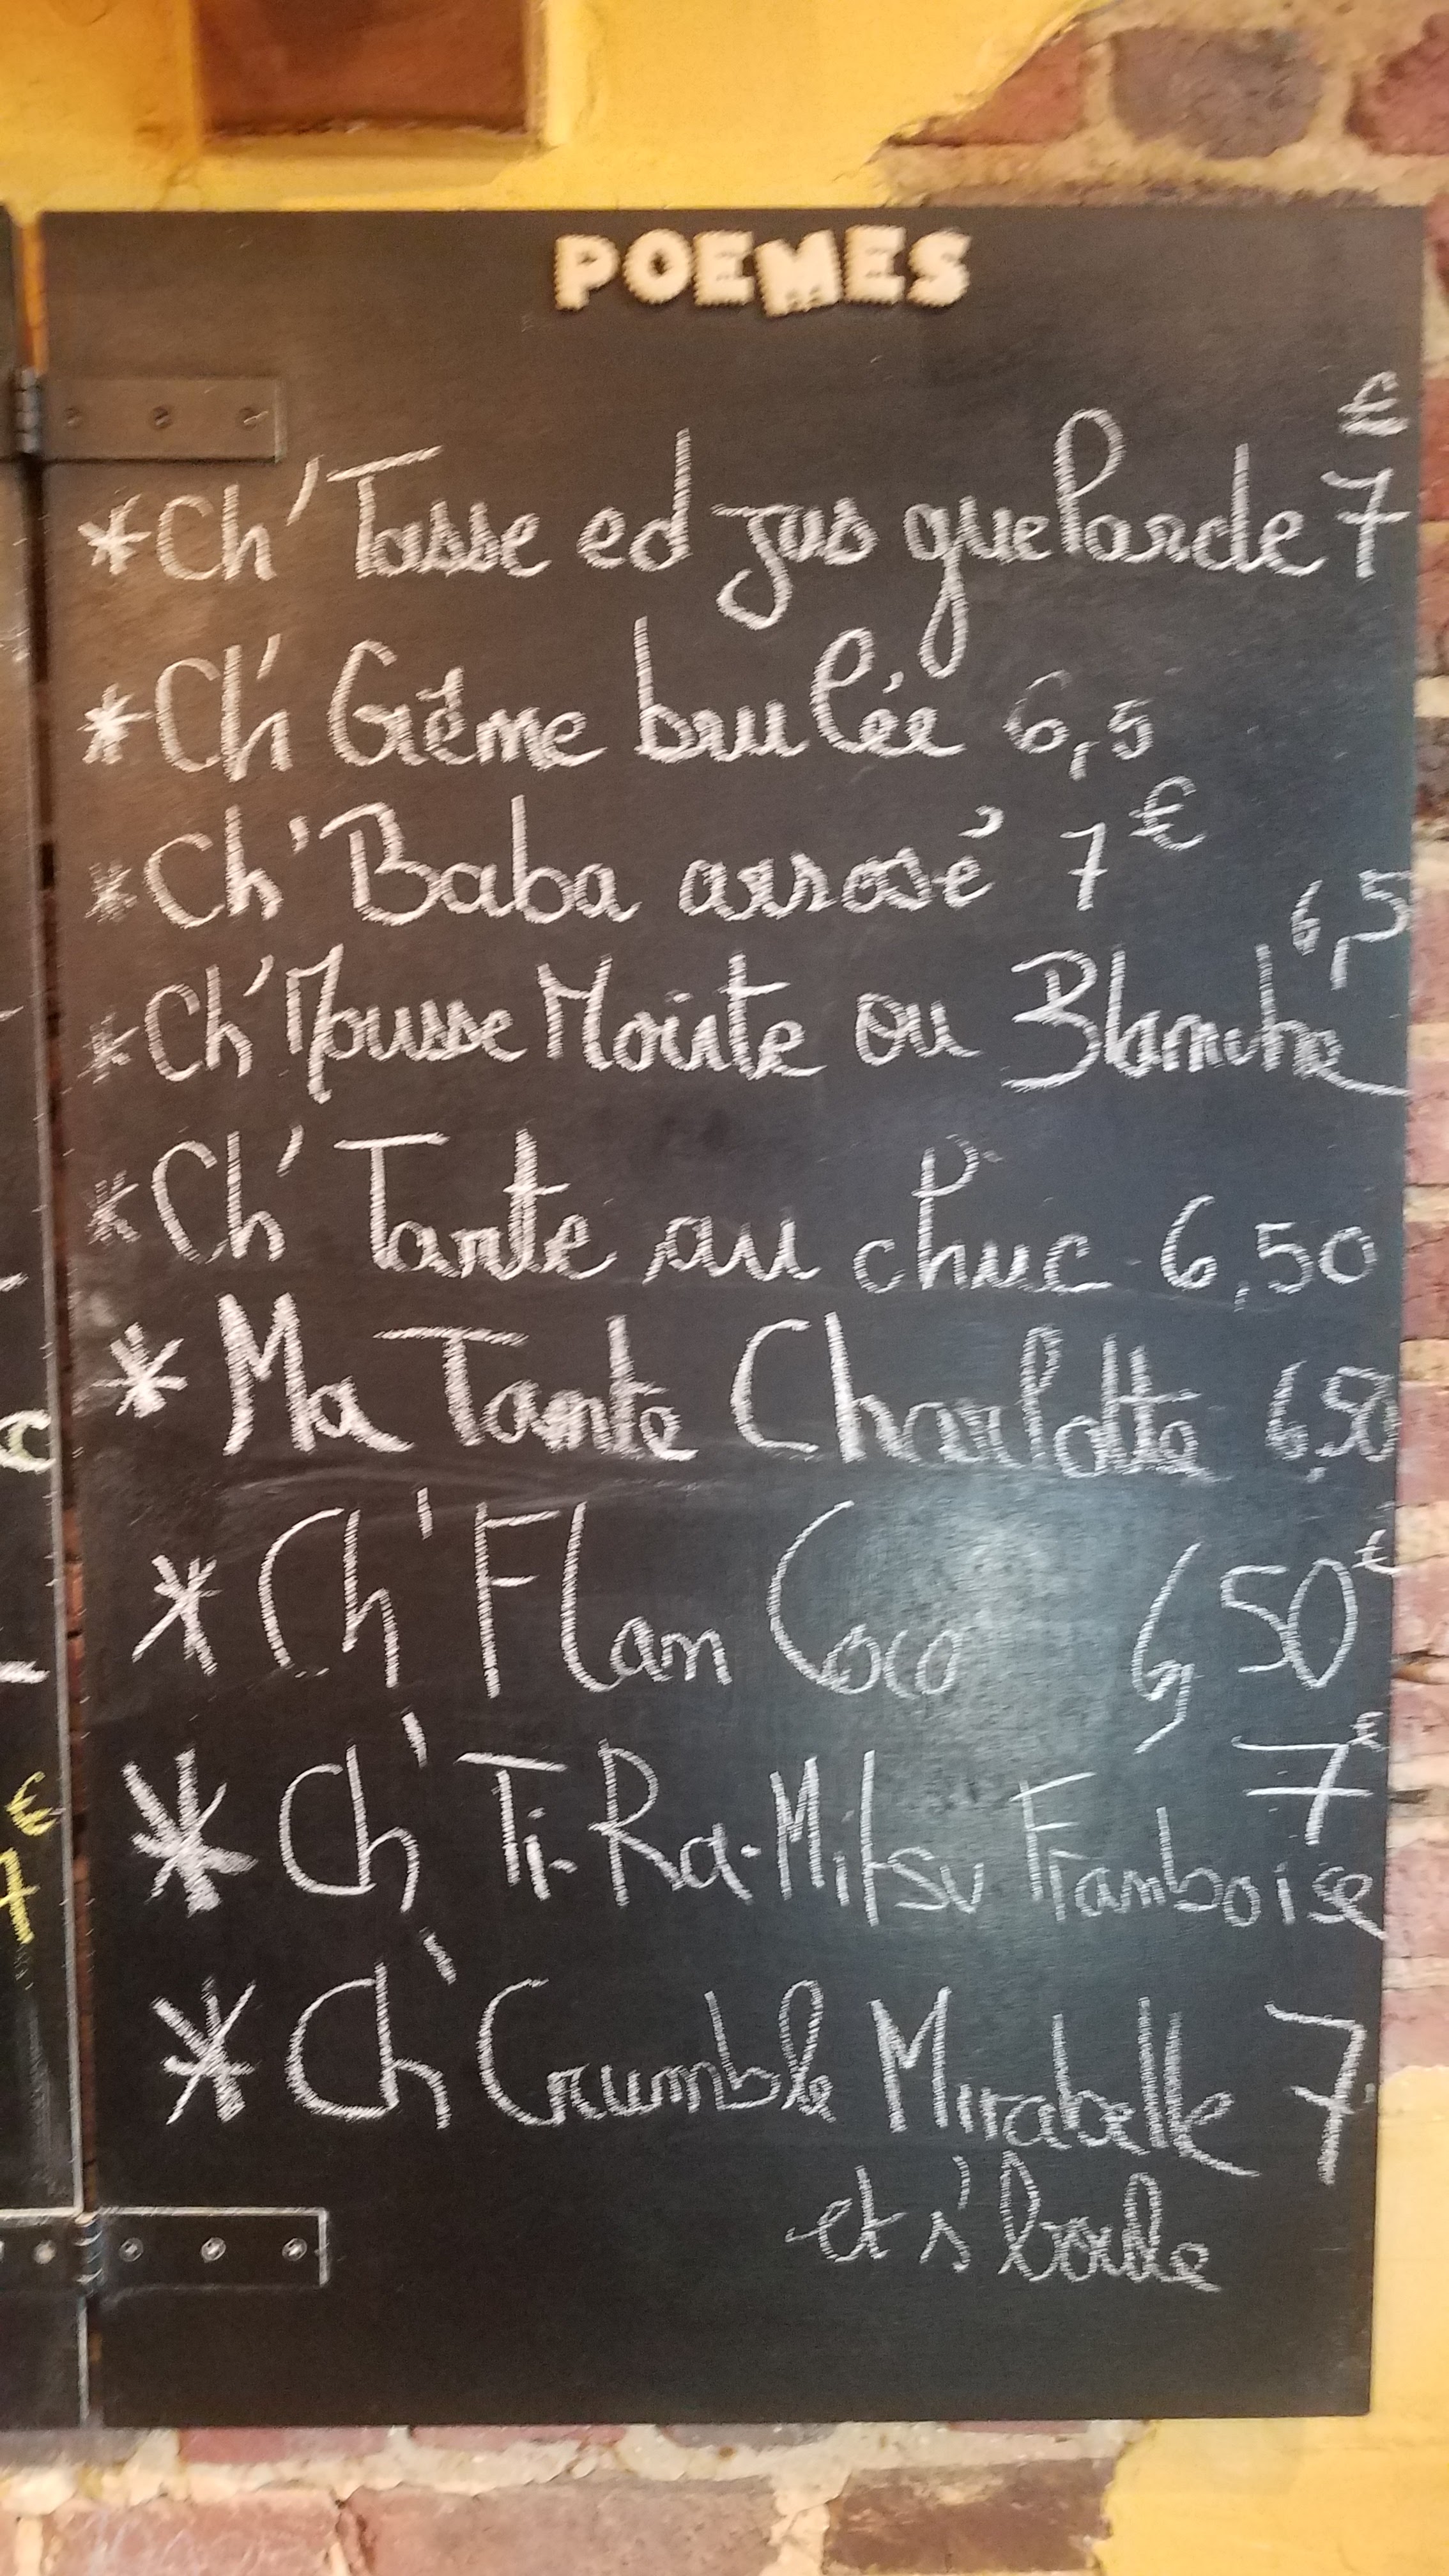 POEMES
€
*Ch'Tasse ed jus quelarde 7
*Ch' Crême brulée 6,5
*Ch'Baba arrosé 7€
6,5
*Ch'Mousse Moirte ou Blanche
*Ch' Tarte au chuc 6,50
*Ma Tante Charlotte 6,50
*Ch'Flan Coco 6,50€
7€
*Ch'Ti-Ra-Mitsu Framboise
*Ch'Crumble Mirabelle 7
et s'boule
€
7